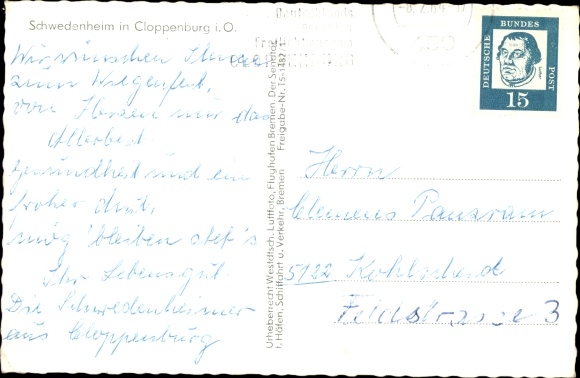 Schwedenheim in Cloppenburg i. O.
Wir wünschen Ihnen
zum Wiegenfest,
von Herzen nur das
Allerbest
Gesundheit und ein
froher Mut,
mög' bleiben stet's
Ihr Lebensgut.
Die Schwedenheimer
aus Cloppenburg
Urheberrecht Westdtsch. Luftfoto, Flughafen Bremen. Der Senator
f. Häfen, Schiffahrt u. Verkehr, Bremen Freigabe-Nr. 15-1482/1
DEUTSCHE BUNDES POST
15
Herrn
Clemens Panzram
5122 Kohlscheid
Feldstrasse 3